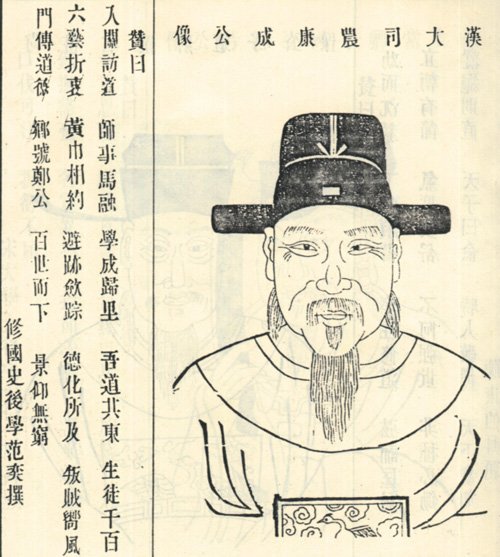 漢大司農康成公像
贊曰
入關訪道 師事馬融 學成歸里 吾道其東 生徒千百
六藝折衷 黃巾相約 避跡斂踪 德化所及 叛賊嚮風
門傳道德 鄉號鄭公 百世而下 景仰無窮
修國史後學范奕撰